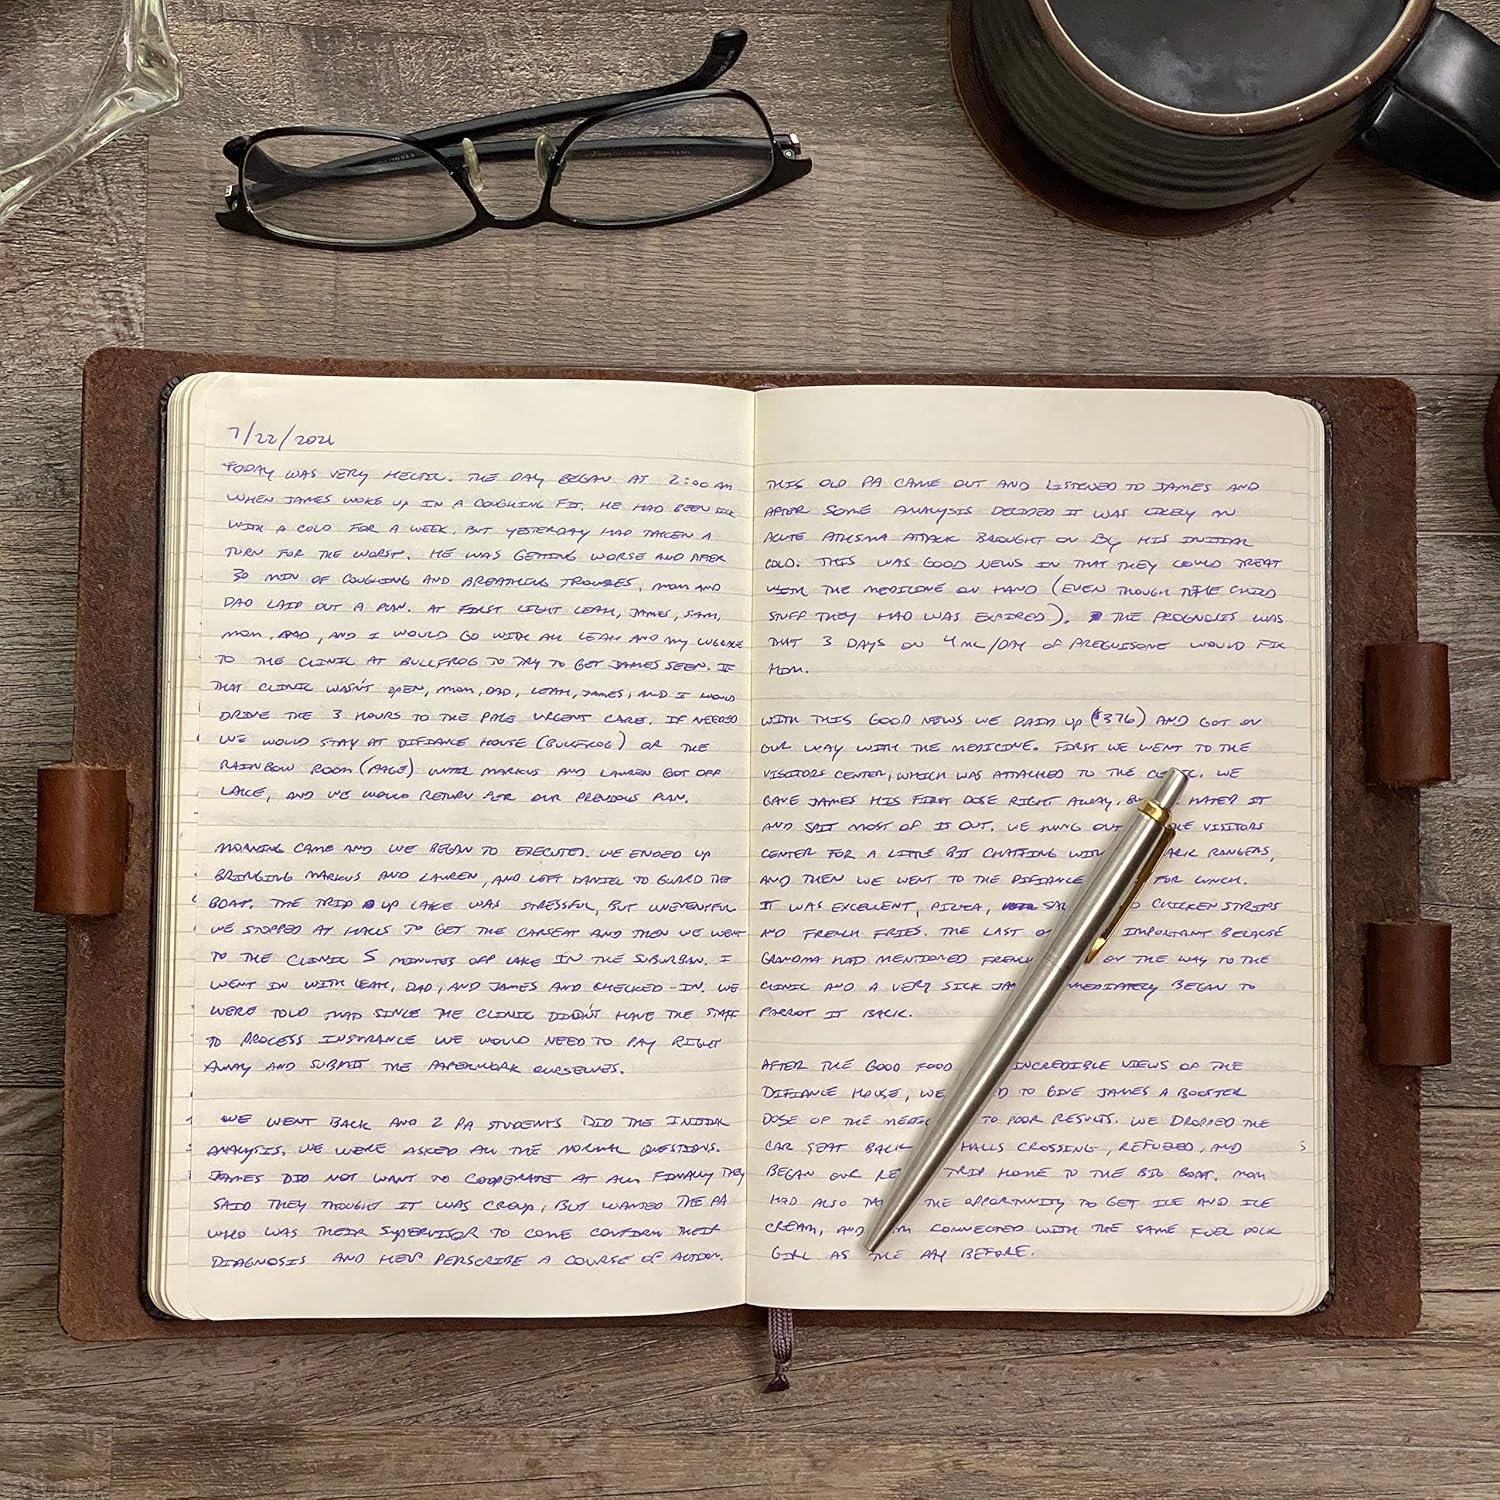 7/22/2021
TODAY WAS VERY HECTIC. THE DAY BEGAN AT 2:00 AM
WHEN JAMES WOKE UP IN A COUGHING FIT. HE HAD BEEN SICK
WITH A COLD FOR A WEEK, BUT YESTERDAY HAD TAKEN A
TURN FOR THE WORST. HE WAS GETTING WORSE AND AFTER
30 MIN OF COUGHING AND BREATHING TROUBLES, MOM AND
DAD LAID OUT A PLAN. AT FIRST LIGHT LEAH, JAMES, SAM,
MOM, DAD, AND I WOULD GO WITH ALL LEAH AND MY LUGGAGE
TO THE CLINIC AT BULLFROG TO TRY TO GET JAMES SEEN. IF
THAT CLINIC WASN'T OPEN, MOM, DAD, LEAH, JAMES, AND I WOULD
DRIVE THE 3 HOURS TO THE PAGE URGENT CARE. IF NEEDED
WE WOULD STAY AT DIFIANCE HOUSE (BULLFROG) OR THE
RAINBOW ROOM (PAGE) UNTIL MARKUS AND LAUREN GOT OFF
LAKE, AND WE WOULD RETURN PER OUR PREVIOUS PLAN.
MORNING CAME AND WE BEGAN TO EXECUTE. WE ENDED UP
BRINGING MARKUS AND LAUREN, AND LEFT DANIEL TO GUARD THE
BOAT. THE TRIP UP LAKE WAS STRESSFUL, BUT UNEVENTFUL
WE STOPPED AT HALLS TO GET THE CARSEAT AND THEN WE WENT
TO THE CLINIC 5 MINUTES OFF LAKE IN THE SUBURBAN. I
WENT IN WITH LEAH, DAD, AND JAMES AND CHECKED-IN. WE
WERE TOLD THAT SINCE THE CLINIC DIDN'T HAVE THE STAFF
TO PROCESS INSURANCE WE WOULD NEED TO PAY RIGHT
AWAY AND SUBMIT THE PAPERWORK OURSELVES.
WE WENT BACK AND 2 PA STUDENTS DID THE INITIAL
ANALYSIS. WE WERE ASKED ALL THE NORMAL QUESTIONS.
JAMES DID NOT WANT TO COOPERATE AT ALL. FINALLY THEY
SAID THEY THOUGHT IT WAS CROUP, BUT WANTED THE PA
WHO WAS THEIR SUPERVISOR TO COME CONFIRM THEIR
DIAGNOSIS AND HELP PERSCRIBE A COURSE OF ACTION.
THIS OLD PA CAME OUT AND LISTENED TO JAMES AND
AFTER SOME ANALYSIS DECIDED IT WAS LIKELY AN
ACUTE ATHSMA ATTACK BROUGHT ON BY HIS INITIAL
COLD. THIS WAS GOOD NEWS IN THAT THEY COULD TREAT
WITH THE MEDICINE ON HAND (EVEN THOUGH THE CHILD
STUFF THEY HAD WAS EXPIRED). THE PROGNOSIS WAS
THAT 3 DAYS ON 4ML/DAY OF PREGUISONE WOULD FIX
HIM.
WITH THIS GOOD NEWS WE PAID UP ($376) AND GOT ON
OUR WAY WITH THE MEDICINE. FIRST WE WENT TO THE
VISITORS CENTER, WHICH WAS ATTACHED TO THE WE
GAVE JAMES HIS FIRST DOSE RIGHT AWAY, HATED IT
AND SPIT MOST OF IT OUT. WE HUNG OUT VISITORS
CENTER FOR A LITTLE BIT CHATTING RANGERS,
AND THEN WE WENT TO THE DIFIANCE FOR LUNCH.
IT WAS EXCELLENT, PIZZA, CHICKEN STRIPS
AND FRENCH FRIES. THE LAST IMPORTANT BECAUSE
GRANDMA HAD MENTIONED FRENCH ON THE WAY TO THE
CLINIC AND A VERY SICK BEGAN TO
PARROT IT BACK.
AFTER THE GOOD FOOD INCREDIBLE VIEWS OF THE
DIFIANCE HOUSE, WE TO GIVE JAMES A BOOSTER
DOSE OF THE TO POOR RESULTS. WE DROPPED THE
CAR SEAT BACK HALLS CROSSING, REFUELED, AND
BEGAN OUR TRIP HOME TO THE BIG BOAT. MOM
HAD ALSO THE OPPORTUNITY TO GET ICE AND ICE
CREAM, AND CONNECTED WITH THE SAME FUEL DOCK
GIRL AS THE DAY BEFORE.